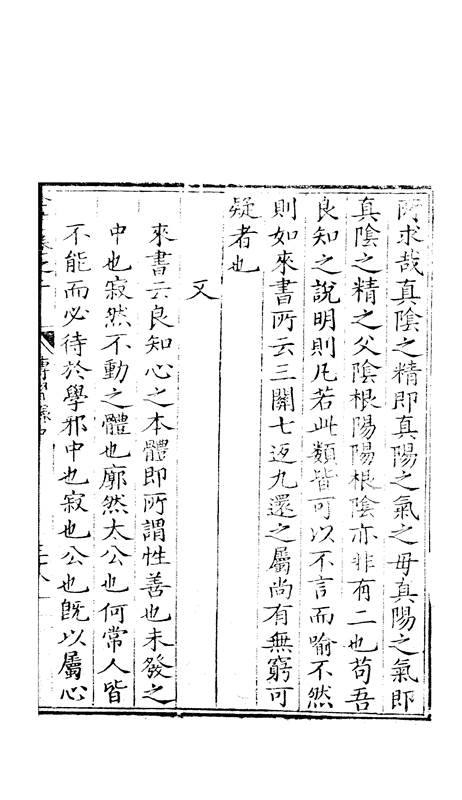 所求哉真陰之精即真陽之氣之母真陽之氣即
真陰之精之父陰根陽陽根陰亦非有二也苟吾
良知之說明則凡若此類皆可以不言而喻不然
則如來書所云三關七返九還之屬尚有無窮可
疑者也
又
來書云良知心之本體即所謂性善也未發之
中也寂然不動之體也廓然太公也何常人皆
不能而必待於學邪中也寂也公也既以屬心